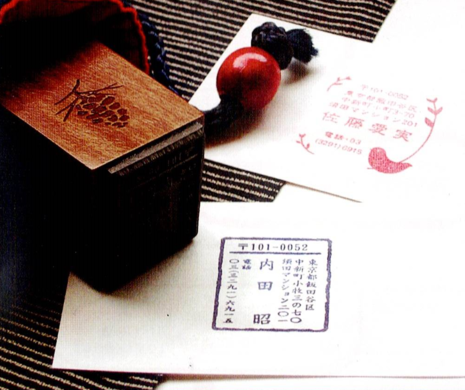 〒101-0052
東京都飯田谷区
中新町小枝三の七〇
須田マンション二〇一
内田昭
電話
〇三(三二九一)六九一五
〒101-0052
東京都飯田谷区
須田マンション201
佐藤愛実
電話・03
(3291)0915